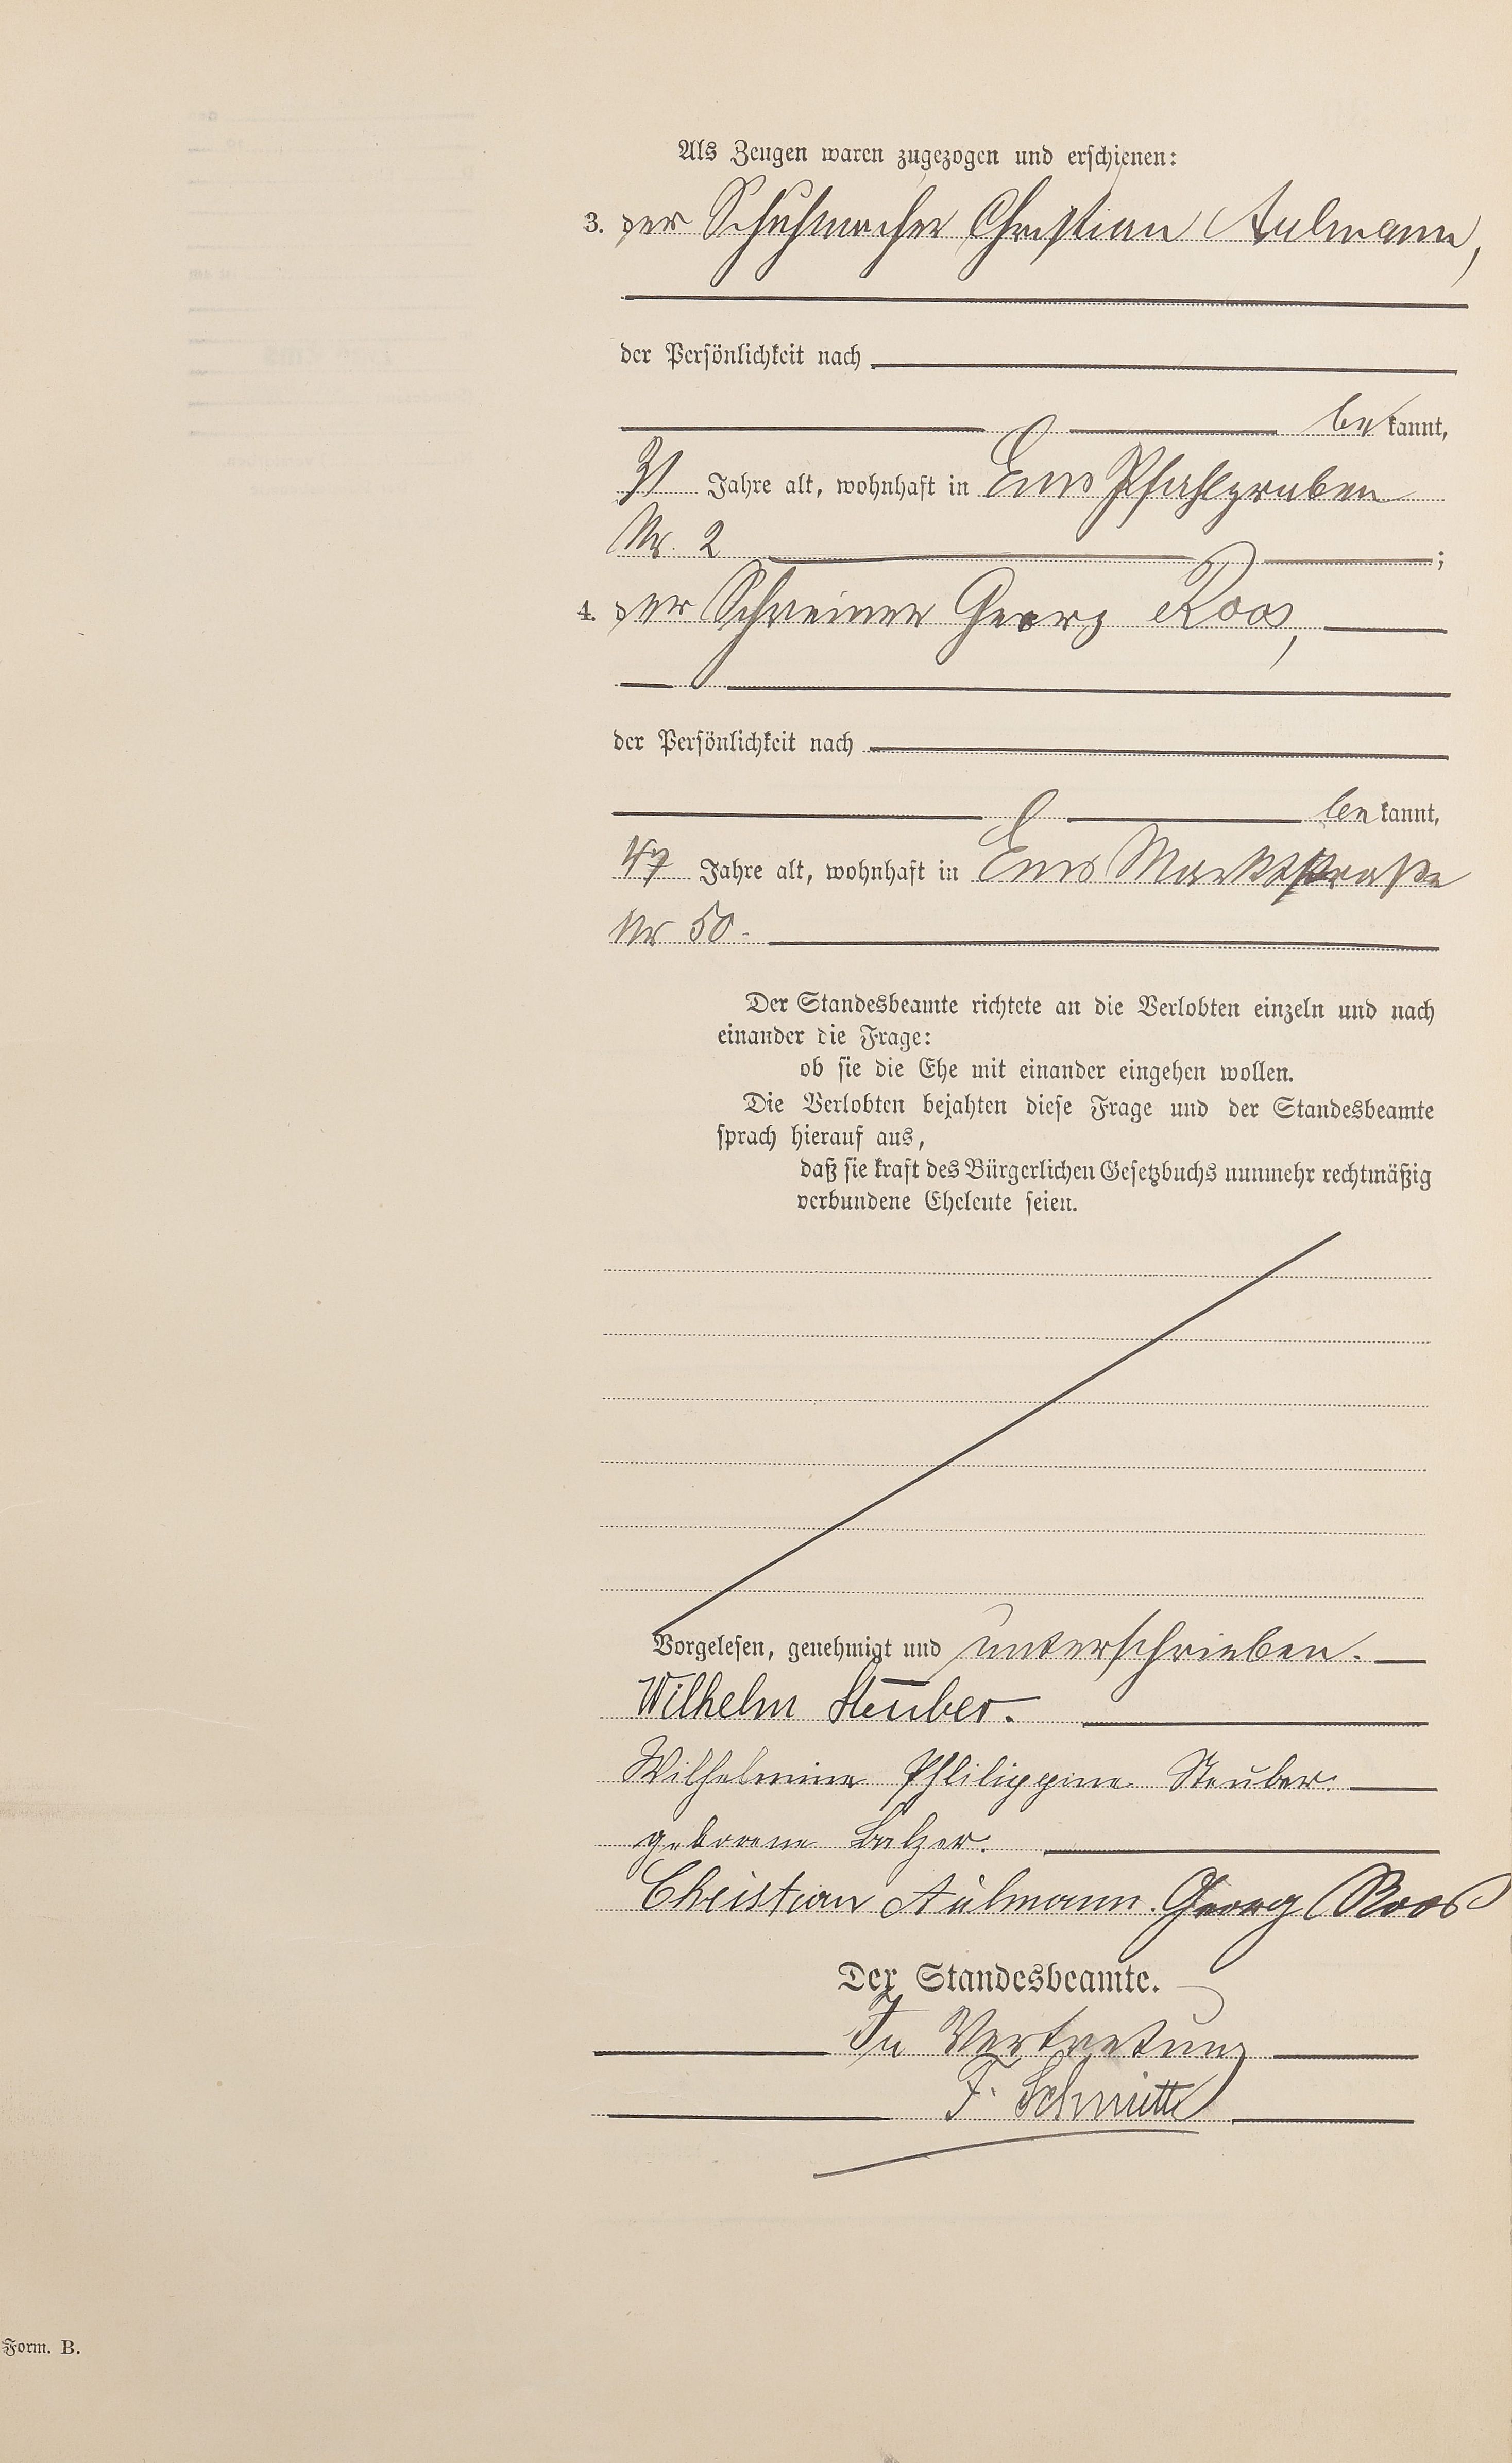 Als Zeugen waren zugezogen und erschienen:
3. der Schuhmacher Christian Aulmann,
der Persönlichkeit nach
be kannt,
31 Jahre alt, wohnhaft in Ems Pfahlgraben
Nr. 2 ;
4. der Schreiner Georg Roos,
der Persönlichkeit nach
be kannt,
47 Jahre alt, wohnhaft in Ems Marktstraße
Nr 50.
Der Standesbeamte richtete an die Verlobten einzeln und nach
einander die Frage:
ob sie die Ehe mit einander eingehen wollen.
Die Verlobten bejahten diese Frage und der Standesbeamte
sprach hierauf aus,
daß sie kraft des Bürgerlichen Gesetzbuchs nunmehr rechtmäßig
verbundene Eheleute seien.
Vorgelesen, genehmigt und unterschrieben.
Wilhelm Steuber.
Wilhelmine Phlilippine Steuber.
geborene Balzer.
Christian Aulmann. Georg Roos
Der Standesbeamte.
In Vertretung
F. Schmitt
Form. B.